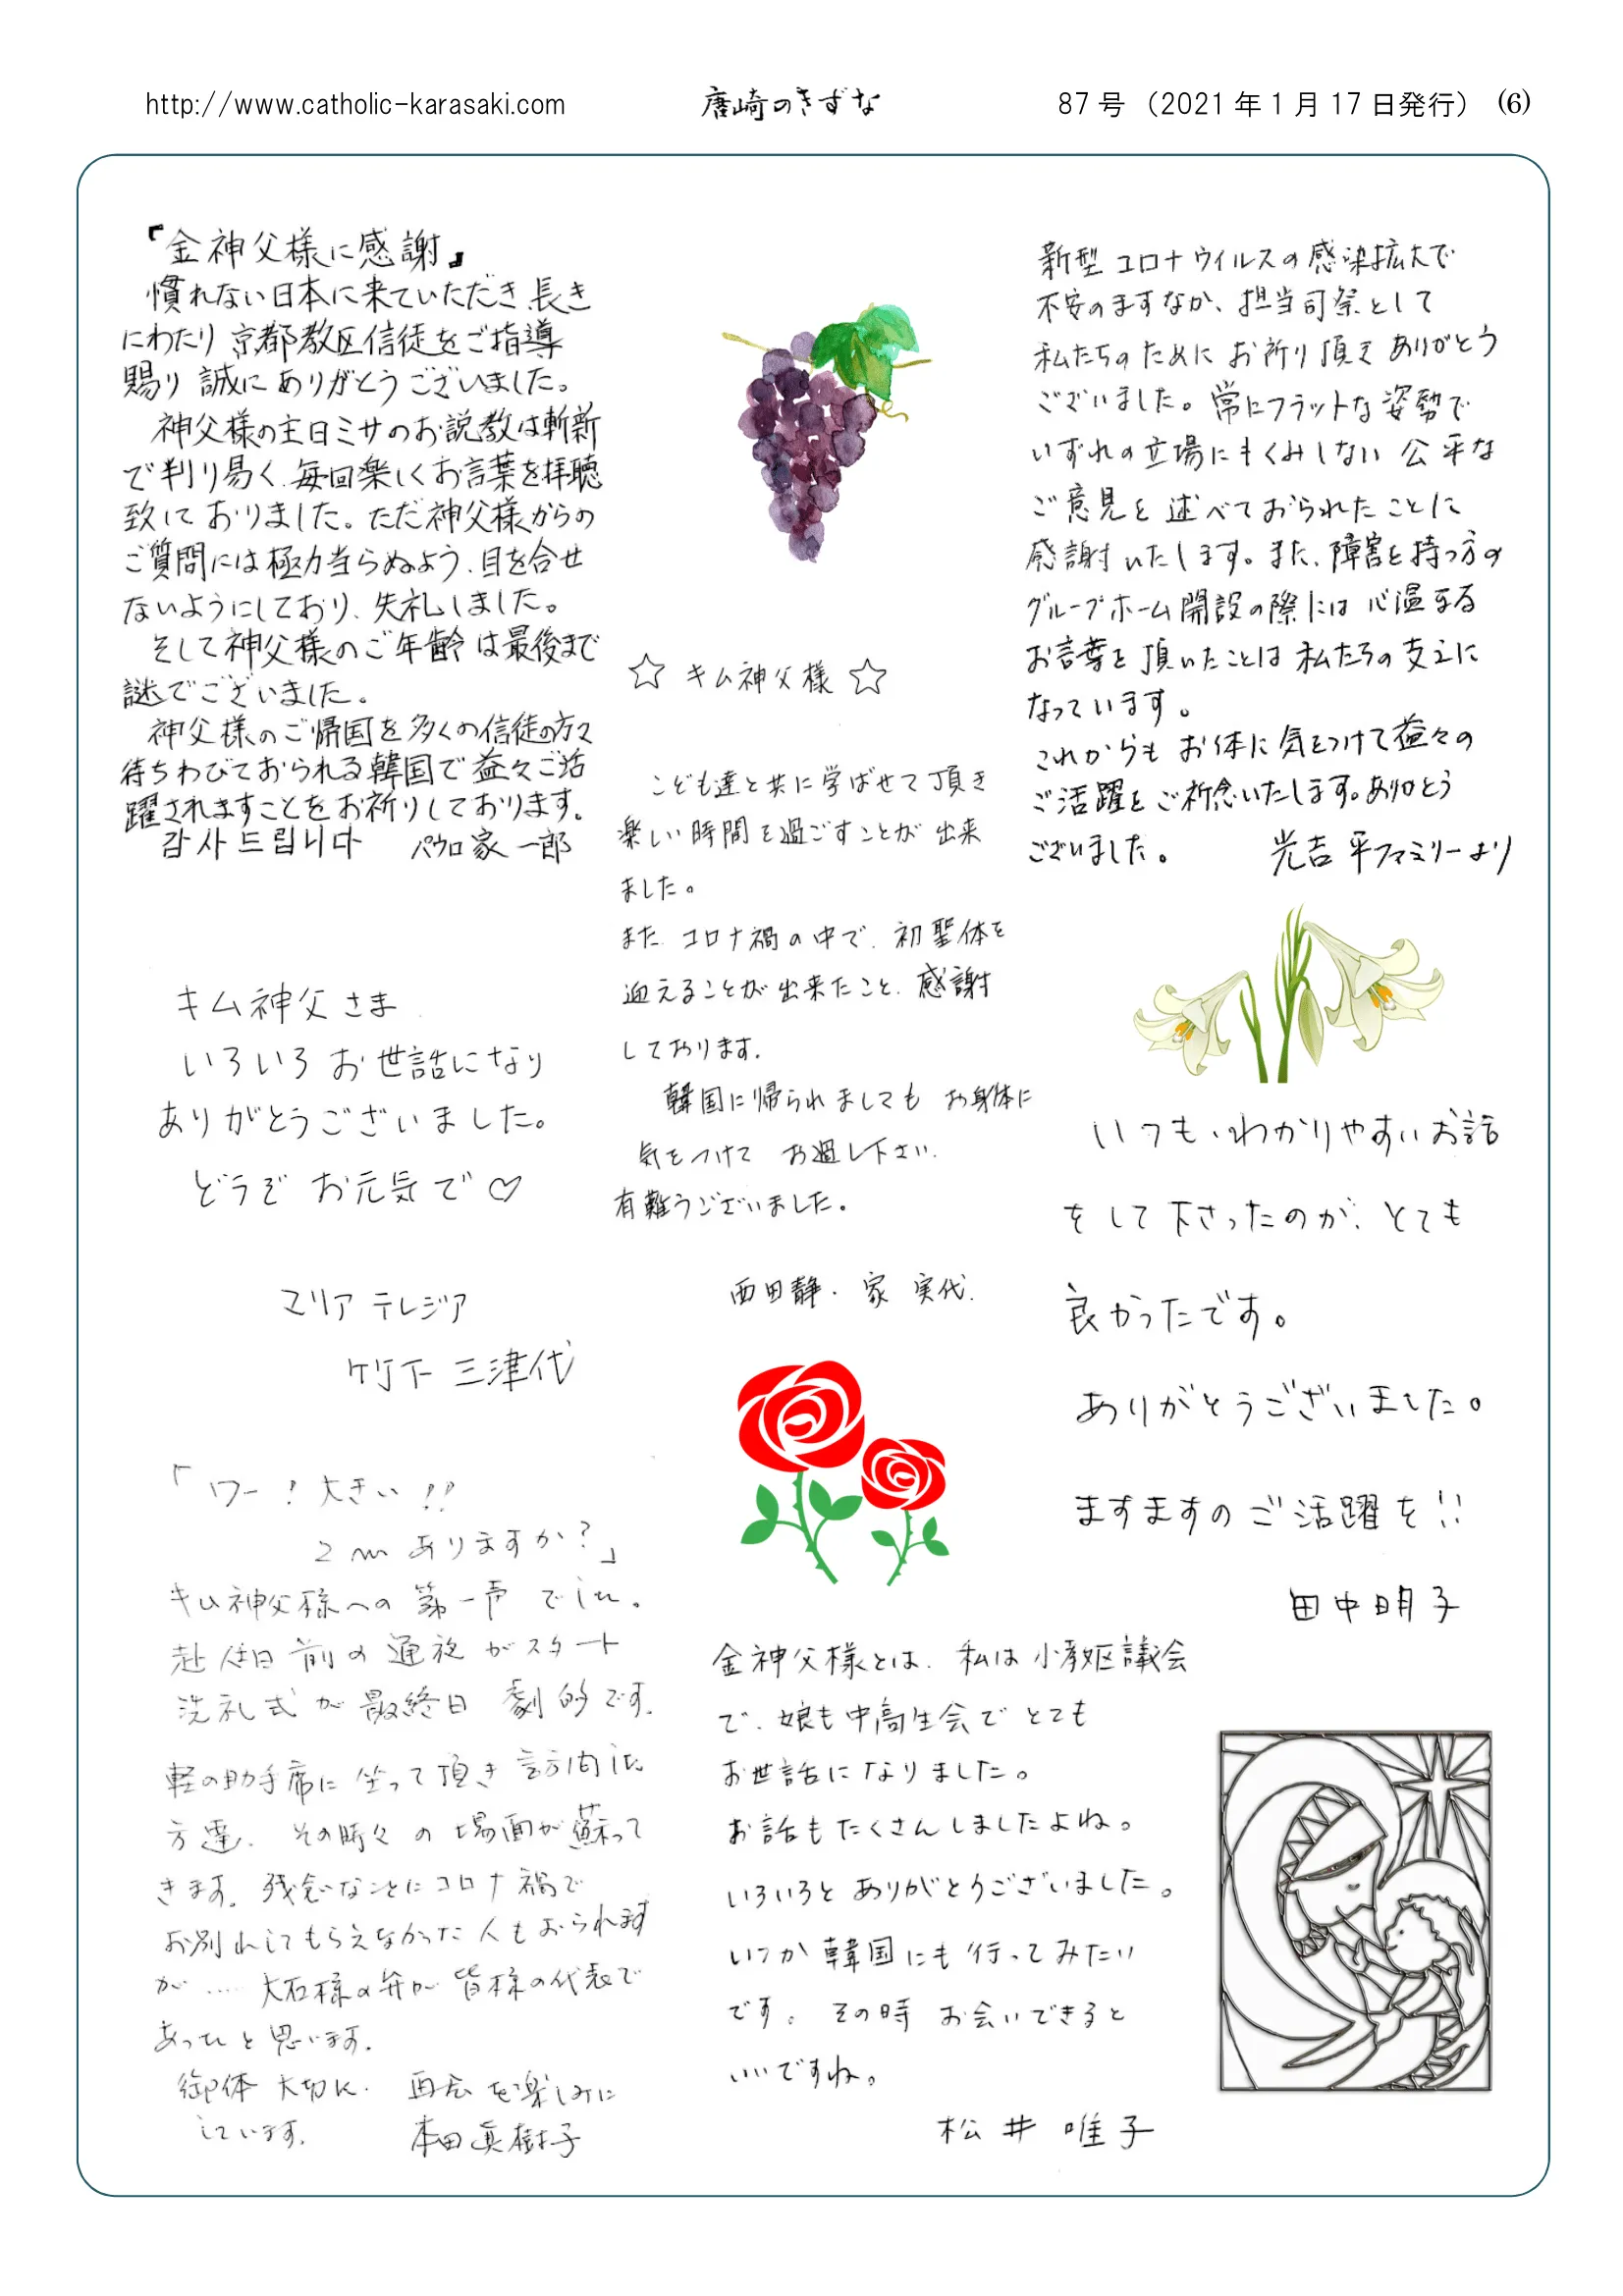 http://www.catholic-karasaki.com
唐崎のきずな
87号（2021年1月17日発行） (6)
『金神父様に感謝』
慣れない日本に来ていただき長き
にわたり京都教区信徒をご指導
賜り誠にありがとうございました。
神父様の主日ミサのお説教は斬新
で判り易く、毎回楽しくお言葉を拝聴
致しておりました。ただ神父様からの
ご質問には極力当らぬよう、目を合せ
ないようにしており、失礼しました。
そして神父様のご年齢は最後まで
謎でございました。
神父様のご帰国を多くの信徒の方々
待ちわびておられる韓国で益々ご活
躍されますことをお祈りしております。
감사드립니다 パウロ家 一郎
キム神父さま
いろいろお世話になり
ありがとうございました。
どうぞ お元気で♡
マリア テレジア
竹下 三津代
「ワー！大きい!!
2m ありますか？」
キム神父様への第一声でした。
赴任日前の通夜がスタート
洗礼式が最終日 劇的です。
軽の助手席に坐って頂き訪問した
方達、その時々の場面が蘇って
きます。残念なことにコロナ禍で
お別れしてもらえなかった人もおられます
が…… 大石様の弁が皆様の代表で
あったと思います。
御体大切に。再会を楽しみに
しています。
本田眞樹子
☆ キム神父様 ☆
こども達と共に学ばせて頂き
楽しい時間を過ごすことが出来
ました。
また、コロナ禍の中で、初聖体を
迎えることが出来たこと、感謝
しております。
韓国に帰られましても お身体に
気をつけて お過し下さい。
有難うございました。
西田静・家 実代
金神父様とは、私は小教区議会
で、娘も中高生会でとても
お世話になりました。
お話もたくさんしましたよね。
いろいろとありがとうございました。
いつか韓国にも行ってみたい
です。その時 お会いできると
いいですね。
松井 唯子
新型コロナウイルスの感染拡大で
不安のますなか、担当司祭として
私たちのために お祈り頂き ありがとう
ございました。常にフラットな姿勢で
いずれの立場にもくみしない 公平な
ご意見を 述べておられたことに
感謝いたします。また、障害を持つ方の
グループホーム開設の際には 心温まる
お言葉を 頂いたことは 私たちの支えに
なっています。
これからも お体に気をつけて益々の
ご活躍を ご祈念いたします。ありがとう
ございました。
光吉 平ファミリーより
いつも、わかりやすいお話
をして下さったのが、とても
良かったです。
ありがとうございました。
ますますのご活躍を!!
田中明子